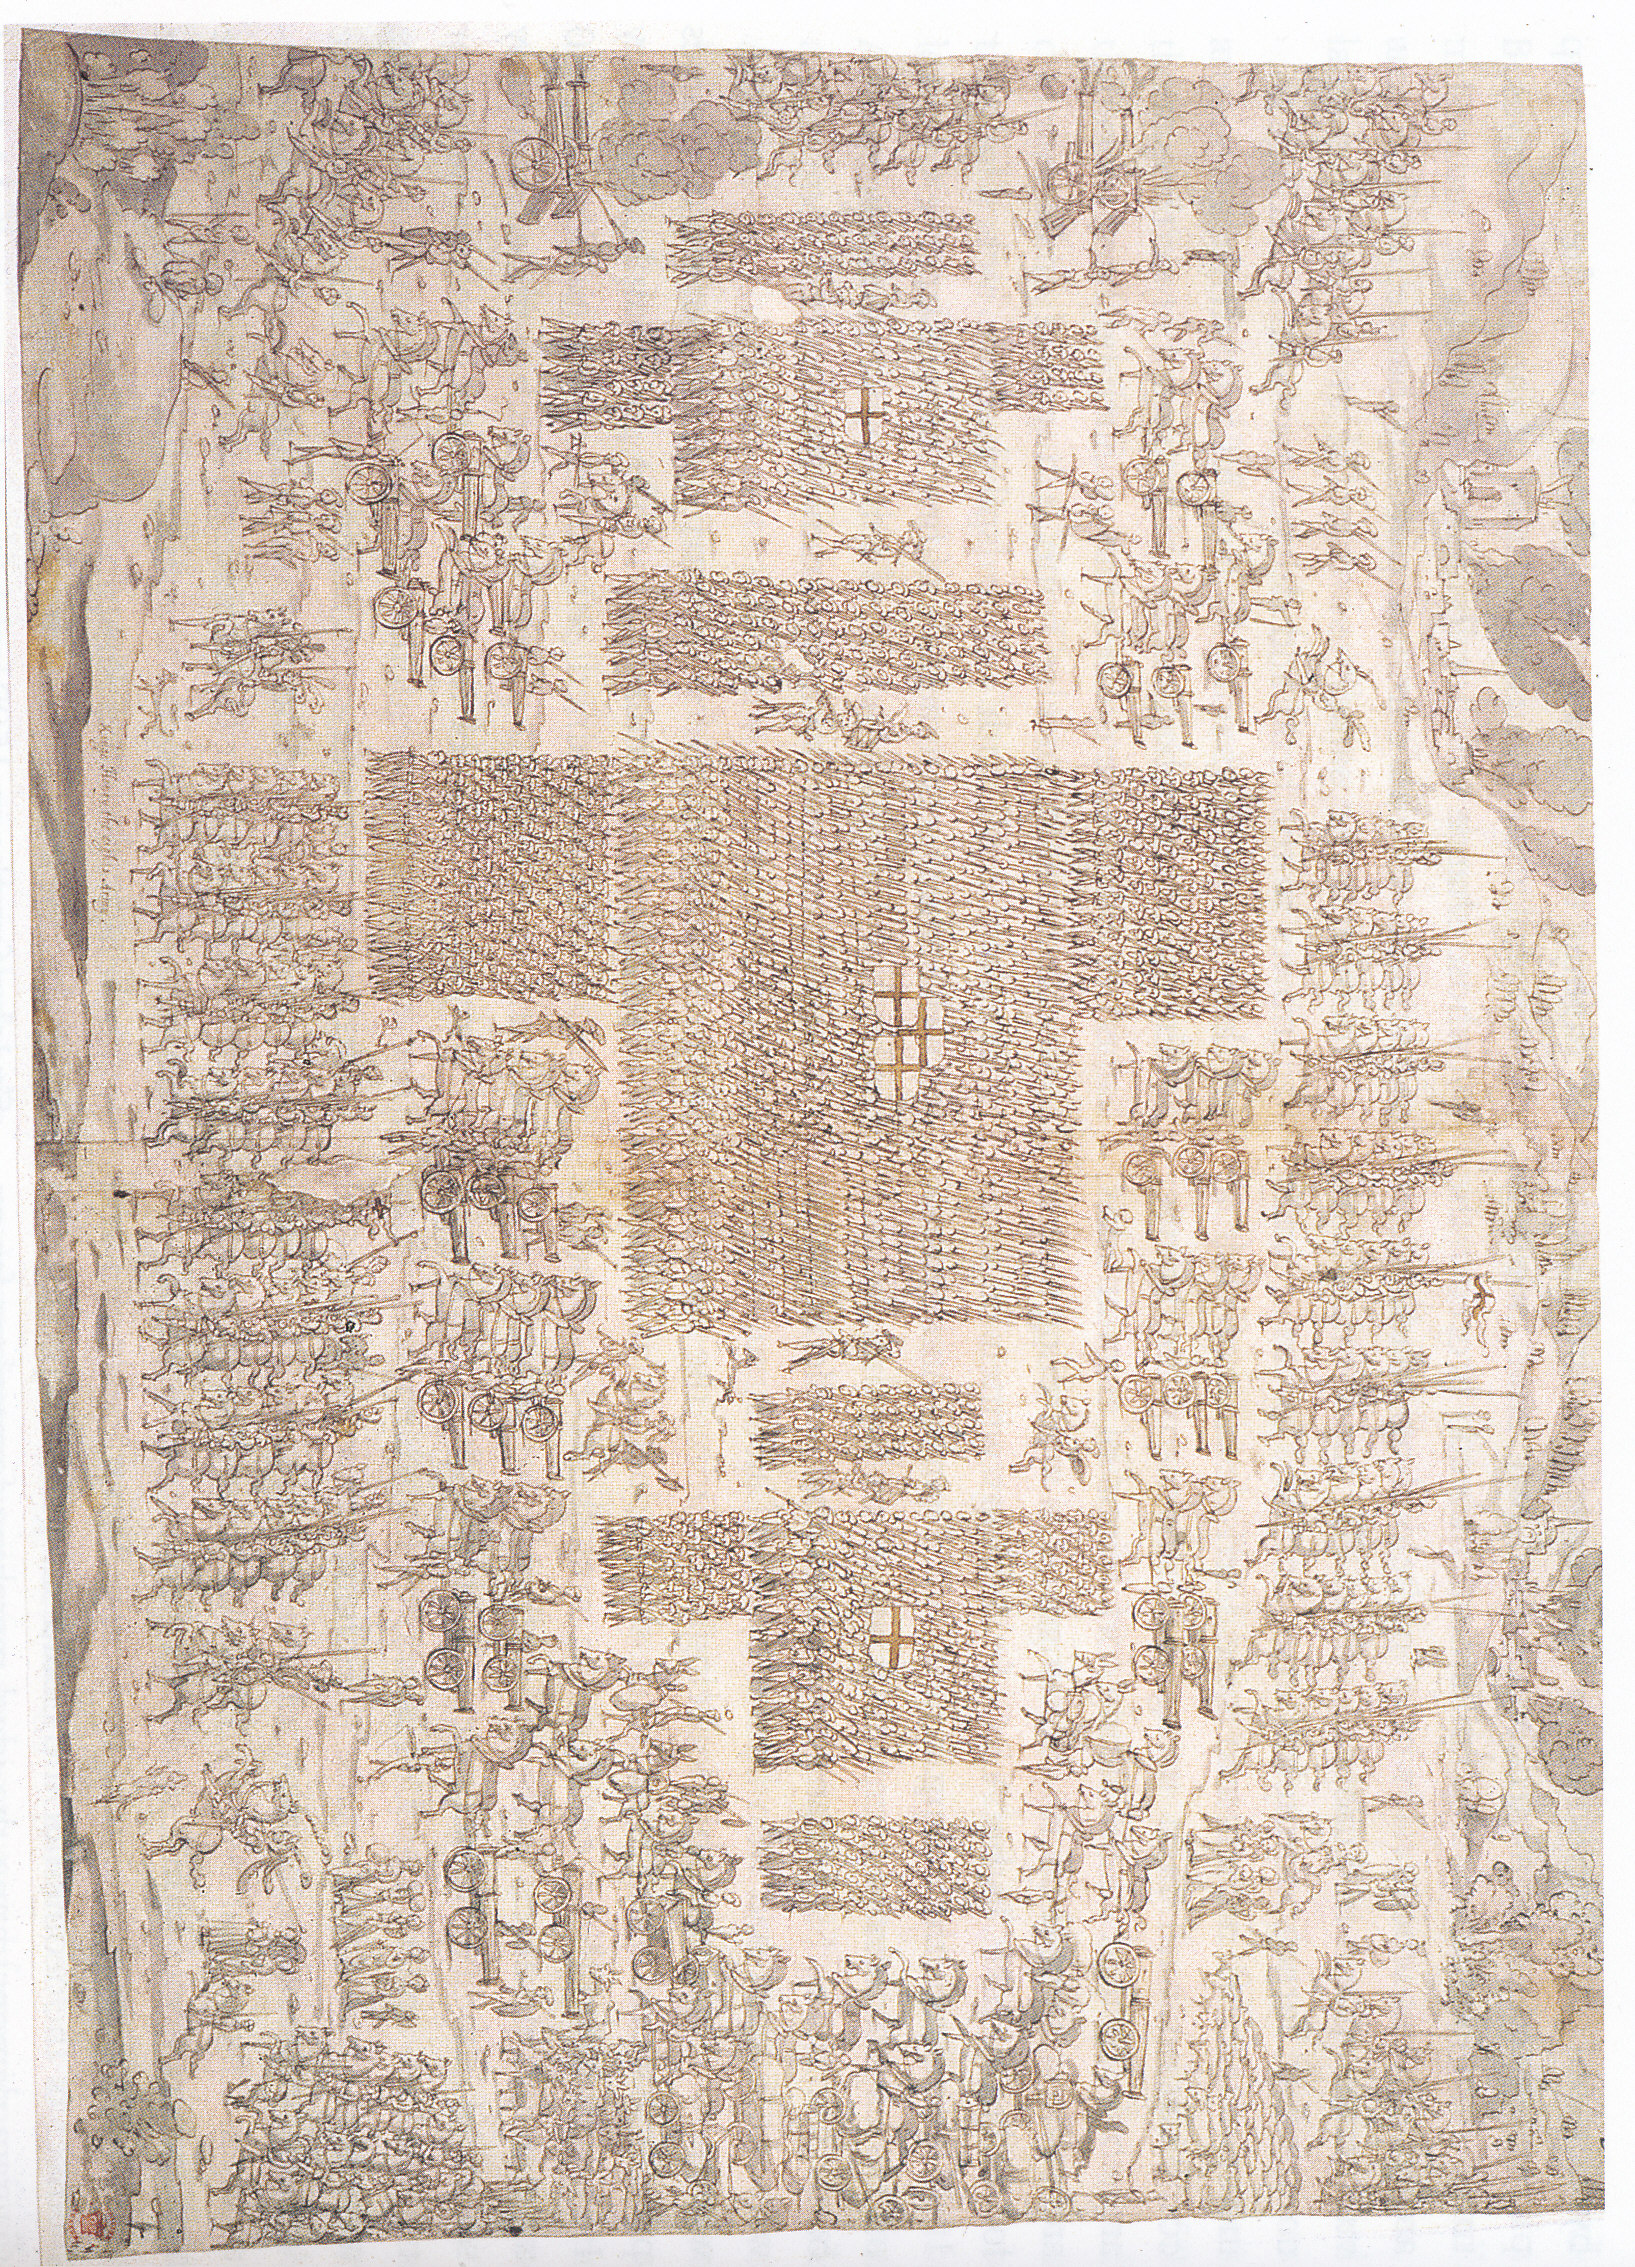 Kinge Henry the eights Army.